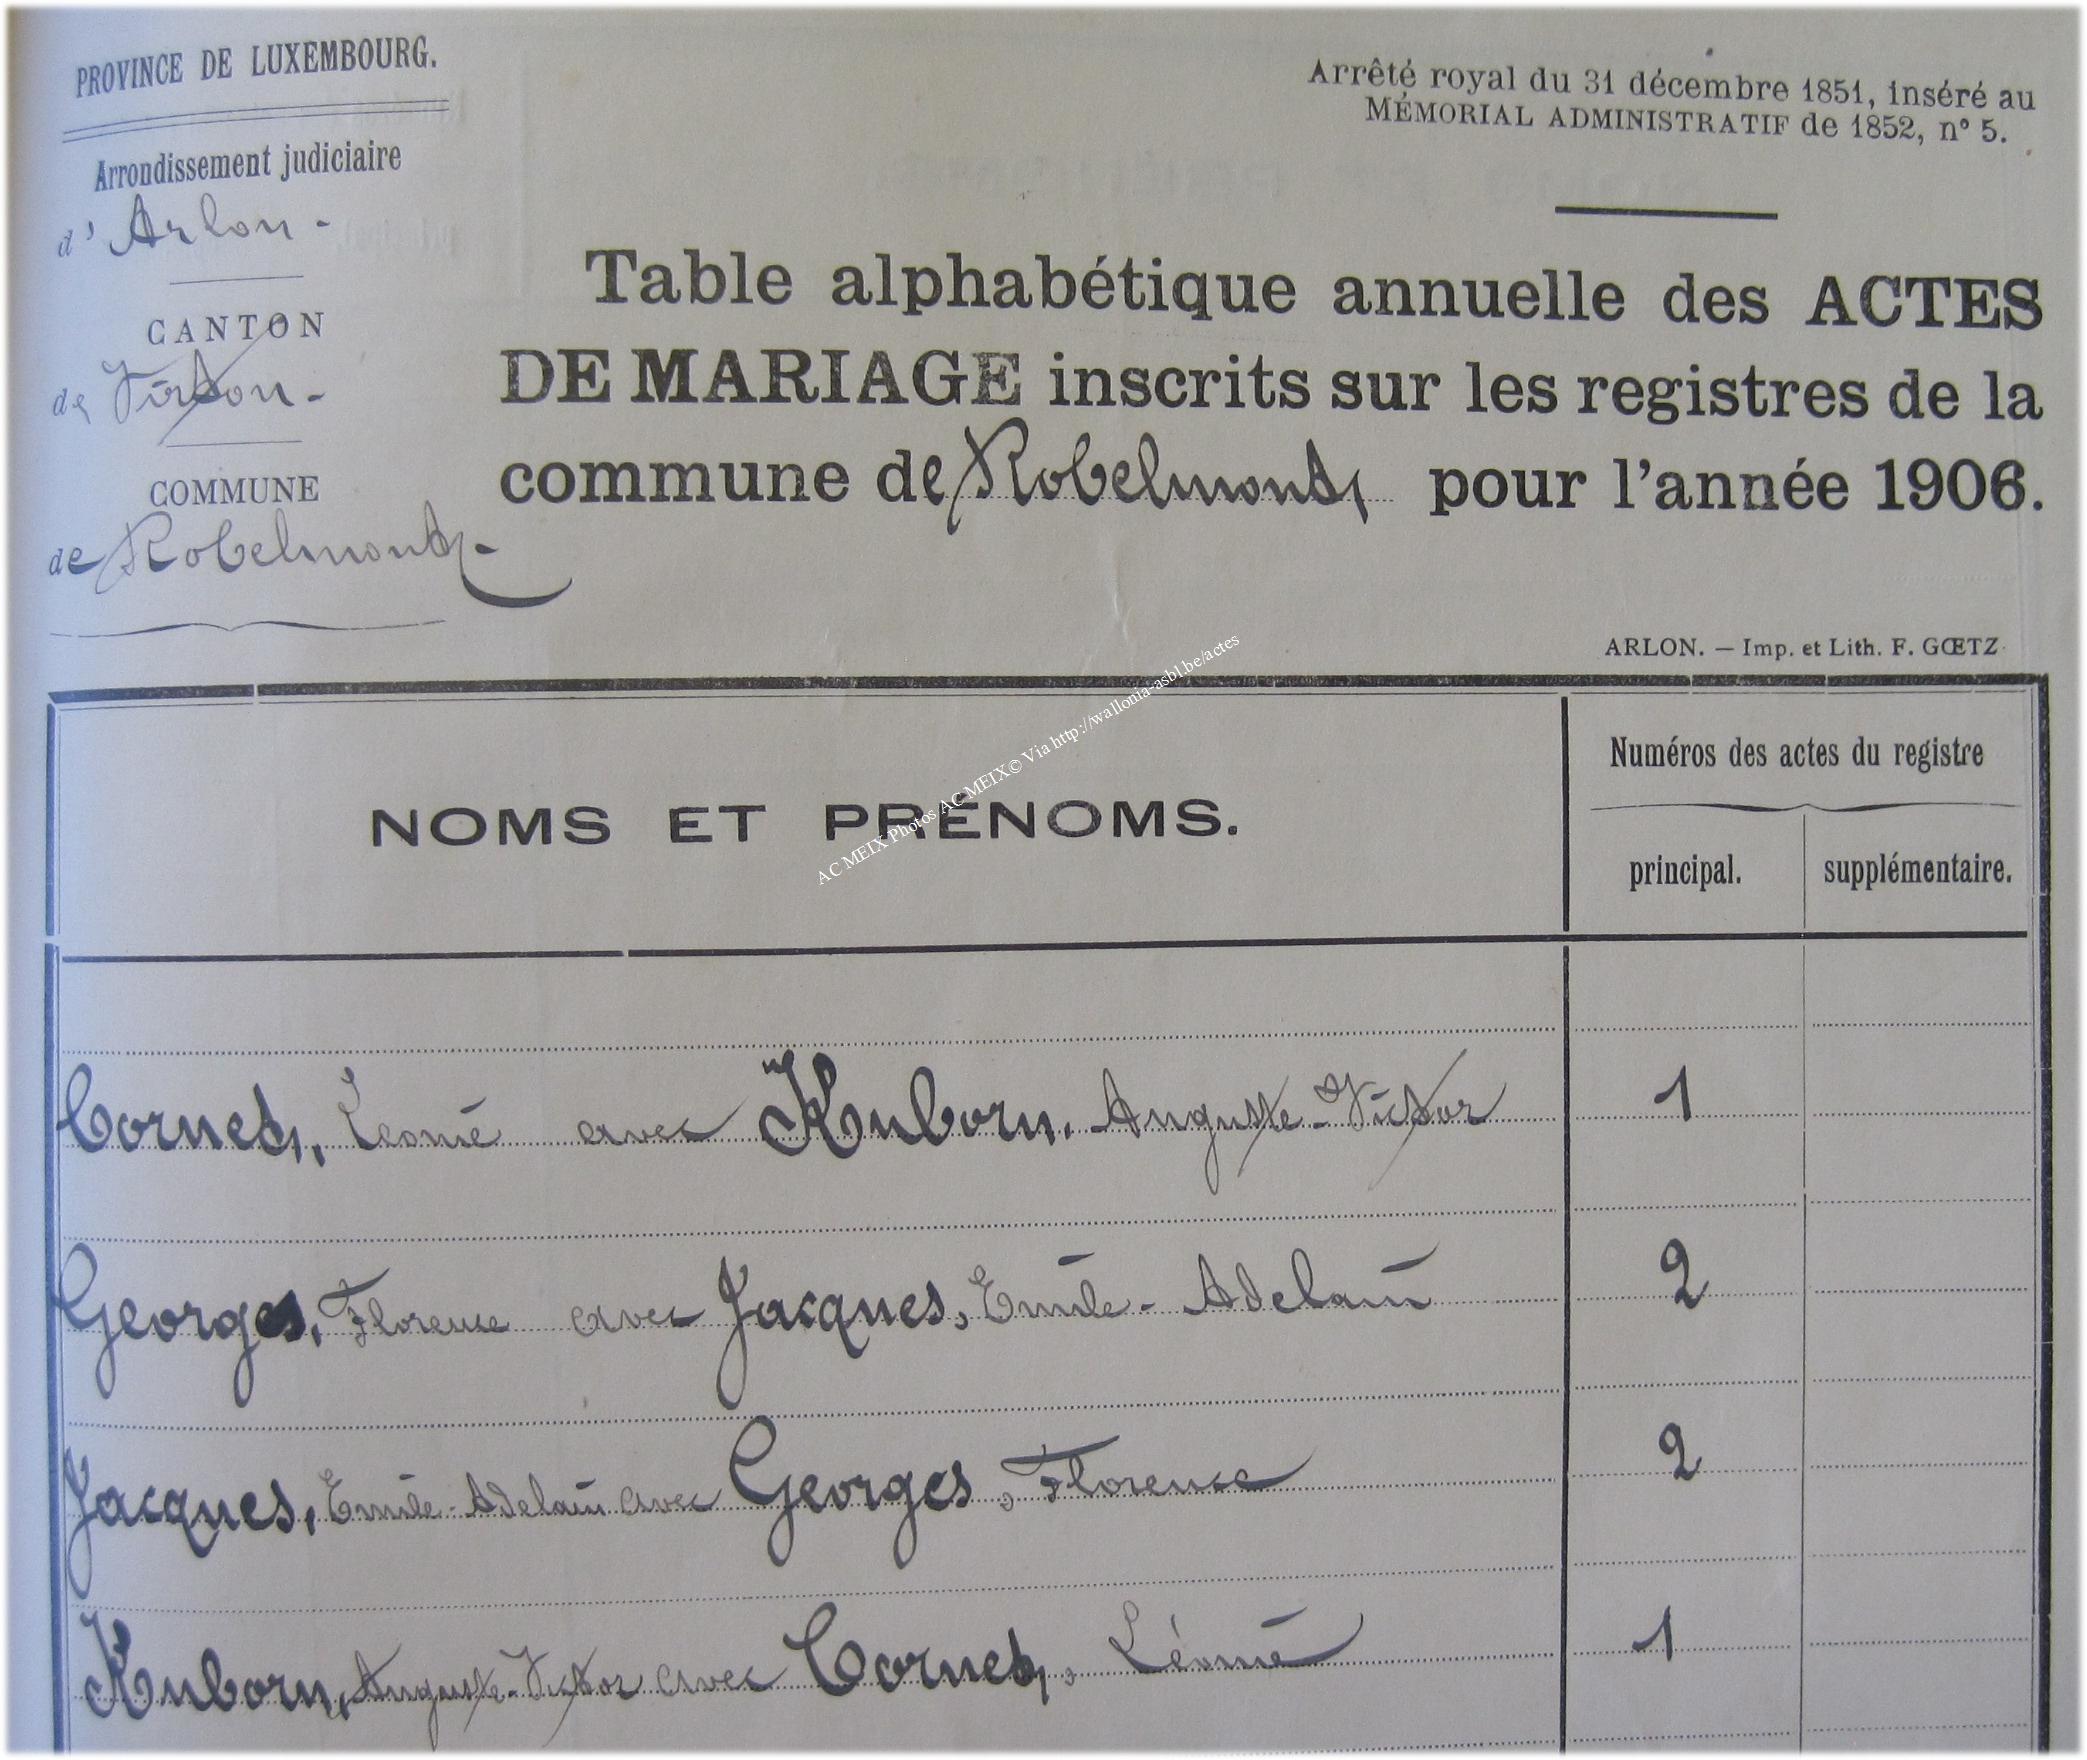 PROVINCE DE LUXEMBOURG.
Arrondissement judiciaire
d'Arlon -
CANTON
de Virton -
COMMUNE
de Robelmont -
Arrêté royal du 31 décembre 1851, inséré au
MÉMORIAL ADMINISTRATIF de 1852, n° 5.
Table alphabétique annuelle des ACTES
DE MARIAGE inscrits sur les registres de la
commune de Robelmont pour l'année 1906.
ARLON. — Imp. et Lith. F. GŒTZ
AC MEIX Photos AC MEIX© Via http://wallonia-asbl.be/actes
NOMS ET PRÉNOMS.
Numéros des actes du registre
principal. supplémentaire.
Cornet, Léonie avec Kuborn, Auguste-Victor 1
Georges, Florence avec Jacques, Emile-Adelain 2
Jacques, Emile-Adelain avec Georges, Florence 2
Kuborn, Auguste-Victor avec Cornet, Léonie 1